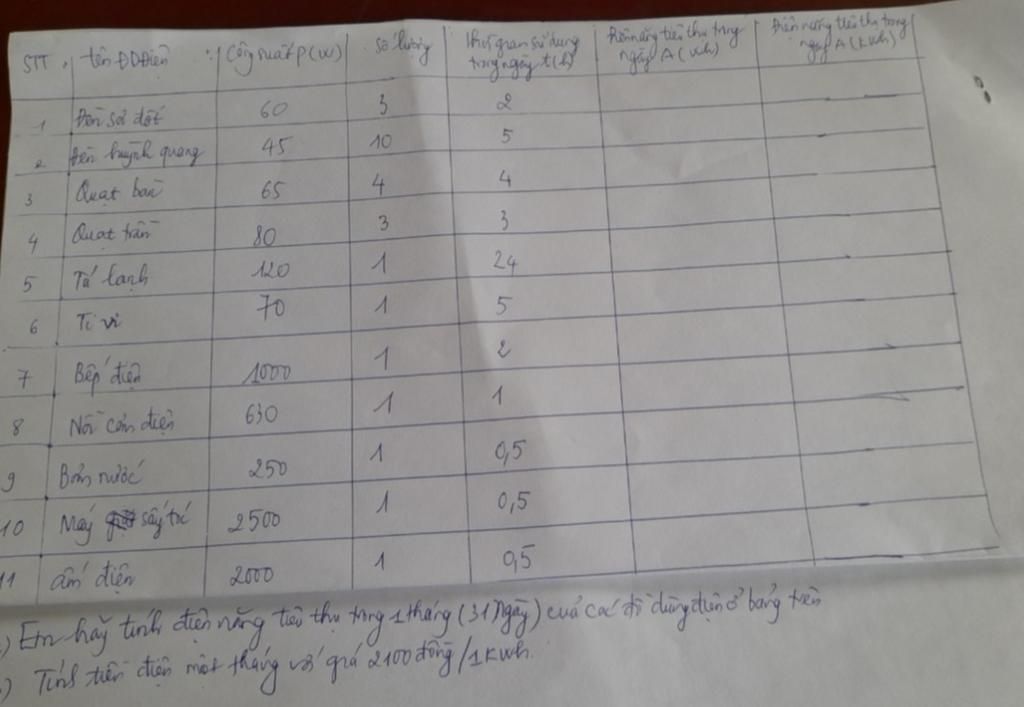 STT tên ĐDĐiện Công suất P(W) Số lượng Thời gian sử dụng trong ngày t(h) Điện năng tiêu thụ trong ngày A(Wh) Điện năng tiêu thụ trong ngày A(KWh)
1 Đèn sợi đốt 60 3 2
2 Đèn huỳnh quang 45 10 5
3 Quạt bàn 65 4 4
4 Quạt trần 80 3 3
5 Tủ lạnh 120 1 24
6 Ti vi 70 1 5
7 Bếp điện 1000 1 2
8 Nồi cơm điện 630 1 1
9 Bơm nước 250 1 0,5
10 Máy sấy tóc 2500 1 0,5
11 ấm điện 2000 1 0,5
) Em hãy tính điện năng tiêu thụ trong 1 tháng (31 Ngày) của các đồ dùng điện ở bảng trên
) Tính tiền điện một tháng với giá 2100 đồng/1KWh.